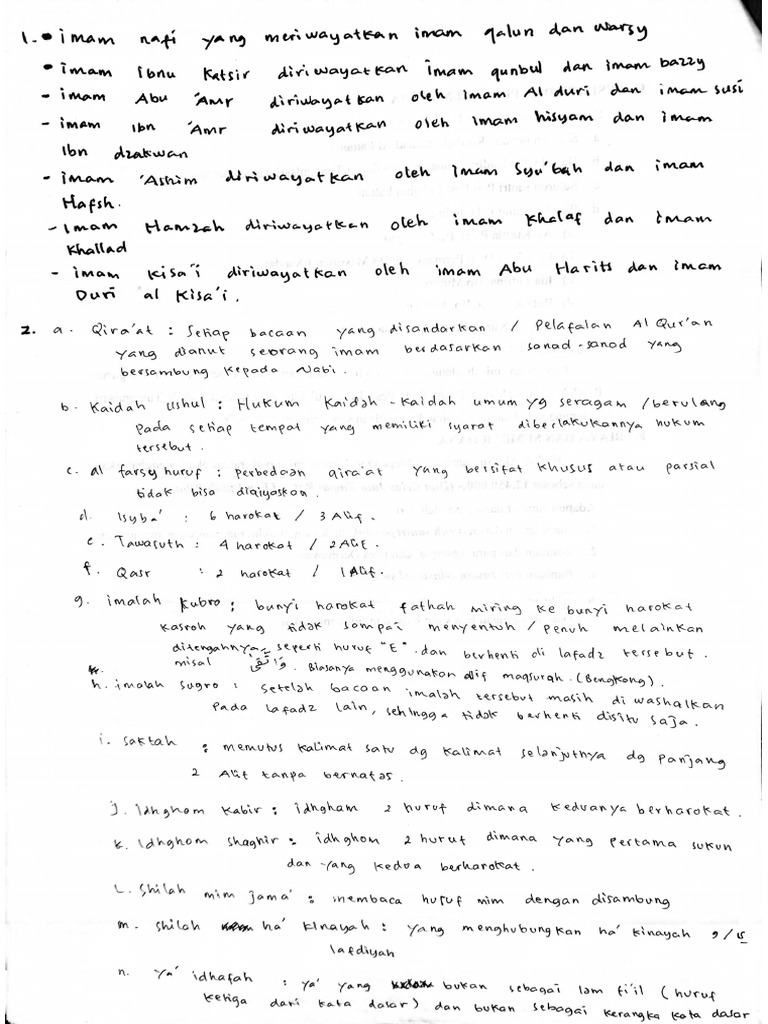 1. • imam nafi yang meriwayatkan imam qalun dan warsy
• imam ibnu katsir diriwayatkan imam qunbul dan imam bazzy
- imam Abu 'Amr diriwayatkan oleh imam Al duri dan imam susi
- imam Ibn 'Amr diriwayatkan oleh imam hisyam dan imam
Ibn dzakwan
- imam 'Ashim diriwayatkan oleh imam Syu'bah dan imam
Hafsh.
- Imam Hamzah diriwayatkan oleh imam Khalaf dan imam
Khallad
- imam Kisa'i diriwayatkan oleh imam Abu Harits dan imam
Duri al Kisa'i.
2. a. Qira'at : Setiap bacaan yang disandarkan / Pelafalan Al Qur'an
yang dianut seorang imam berdasarkan sanad-sanad yang
bersambung kepada Nabi.
b. Kaidah ushul : Hukum kaidah-kaidah umum yg seragam / berulang
pada setiap tempat yang memiliki syarat diberlakukannya hukum
tersebut.
c. al farsy huruf : perbedaan qira'at yang bersifat khusus atau parsial
tidak bisa diqiyaskan.
d. Isyba' : 6 harokat / 3 Alif.
e. Tawasuth : 4 harokat / 2 Alif.
f. Qasr : 2 harokat / 1 Alif.
g. imalah kubro : bunyi harokat fathah miring ke bunyi harokat
kasroh yang tidak sampai menyentuh / penuh melainkan
ditengahnya seperti huruf "E" dan berhenti di lafadz tersebut.
misal وَاتَّقَى. Biasanya menggunakan alif maqsurah. (Bengkong).
h. imalah sugro : setelah bacaan imalah tersebut masih di washalkan
pada lafadz lain, sehingga tidak berhenti disitu saja.
i. saktah : memutus kalimat satu dg kalimat selanjutnya dg panjang
2 Alif tanpa bernafas.
j. Idhghom kabir : idhgham 2 huruf dimana keduanya berharokat.
k. Idhghom shaghir : idhghom 2 huruf dimana yang pertama sukun
dan yang kedua berharokat.
l. Shilah mim jama' : membaca huruf mim dengan disambung
m. shilah ha' kinayah : yang menghubungkan ha' kinayah و/ي
lafdiyah
n. ya' idhafah : ya' yang bukan sebagai lam fi'il (huruf
ketiga dari kata dasar) dan bukan sebagai kerangka kata dasar